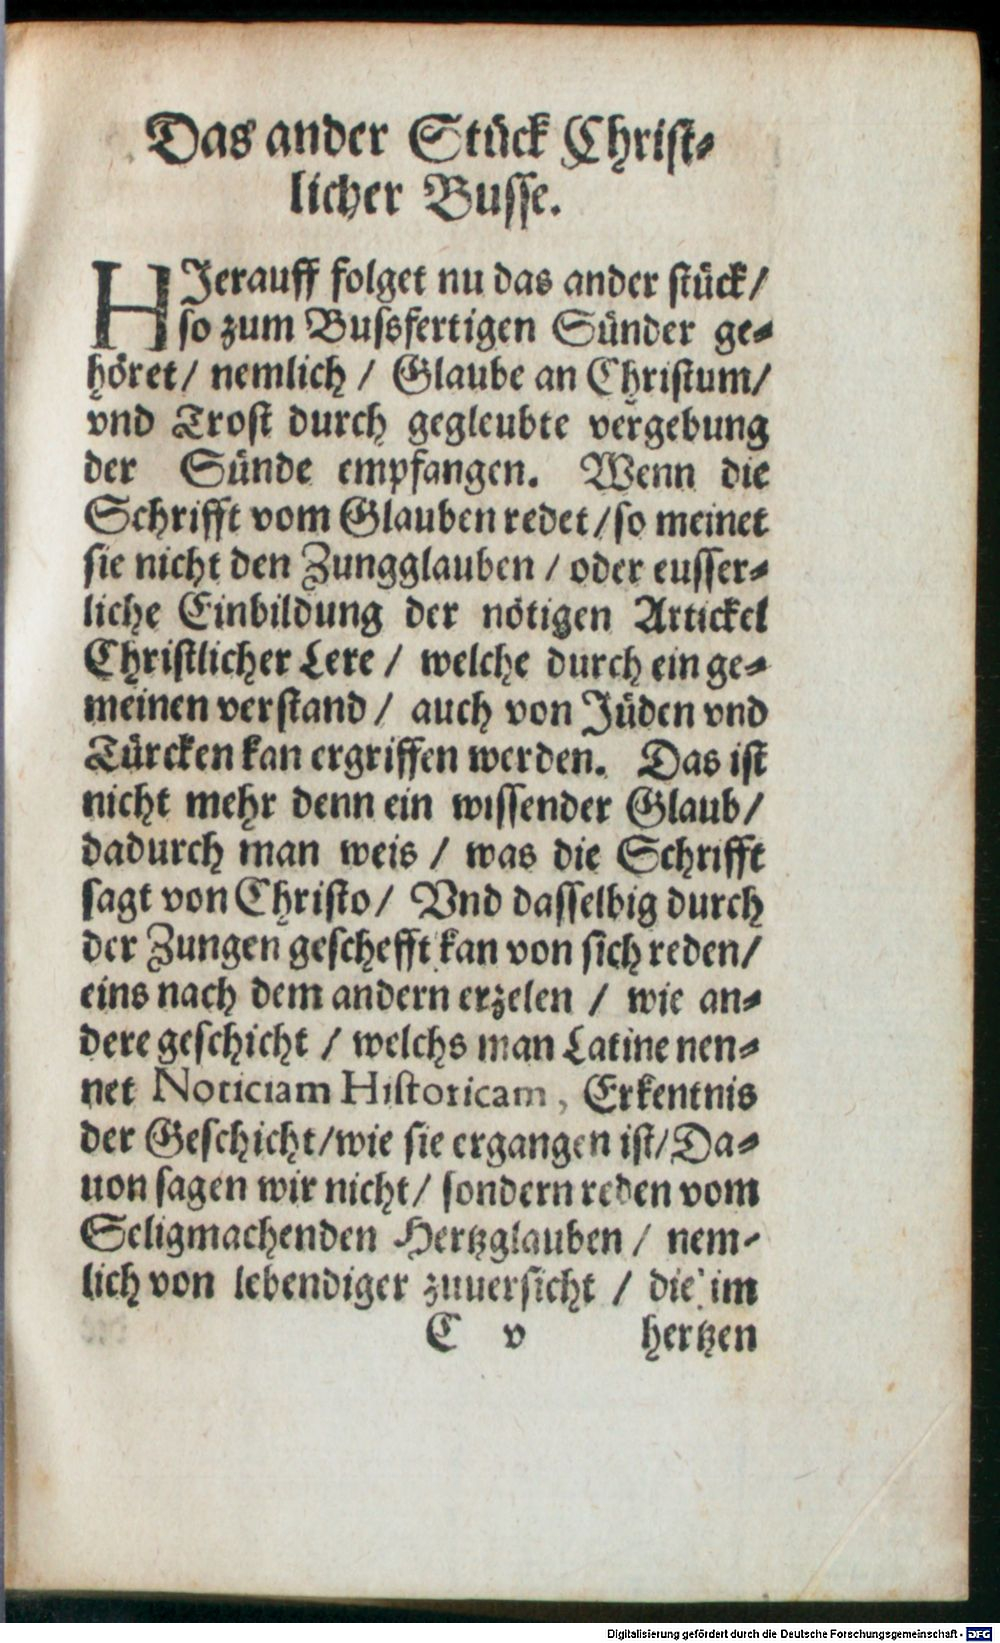 Das ander Stück Christ-
licher Busse.
HJerauff folget nu das ander stück/
so zum Bussfertigen Sünder ge-
höret/ nemlich / Glaube an Christum/
vnd Trost durch gegleubte vergebung
der Sünde empfangen. Wenn die
Schrifft vom Glauben redet/so meinet
sie nicht den Zungglauben / oder eusser-
liche Einbildung der nötigen Artickel
Christlicher Lere / welche durch ein ge-
meinen verstand / auch von Jüden vnd
Türcken kan ergriffen werden. Das ist
nicht mehr denn ein wissender Glaub/
dadurch man weis / was die Schrifft
sagt von Christo/ Vnd dasselbig durch
der Zungen geschefft kan von sich reden/
eins nach dem andern erzelen / wie an-
dere geschicht / welchs man Latine nen-
net Noticiam Historicam, Erkentnis
der Geschicht/wie sie ergangen ist/Da-
uon sagen wir nicht/ sondern reden vom
Seligmachenden Hertzglauben / nem-
lich von lebendiger zuuersicht / die im
C v hertzen
Digitalisierung gefördert durch die Deutsche Forschungsgemeinschaft - DFG